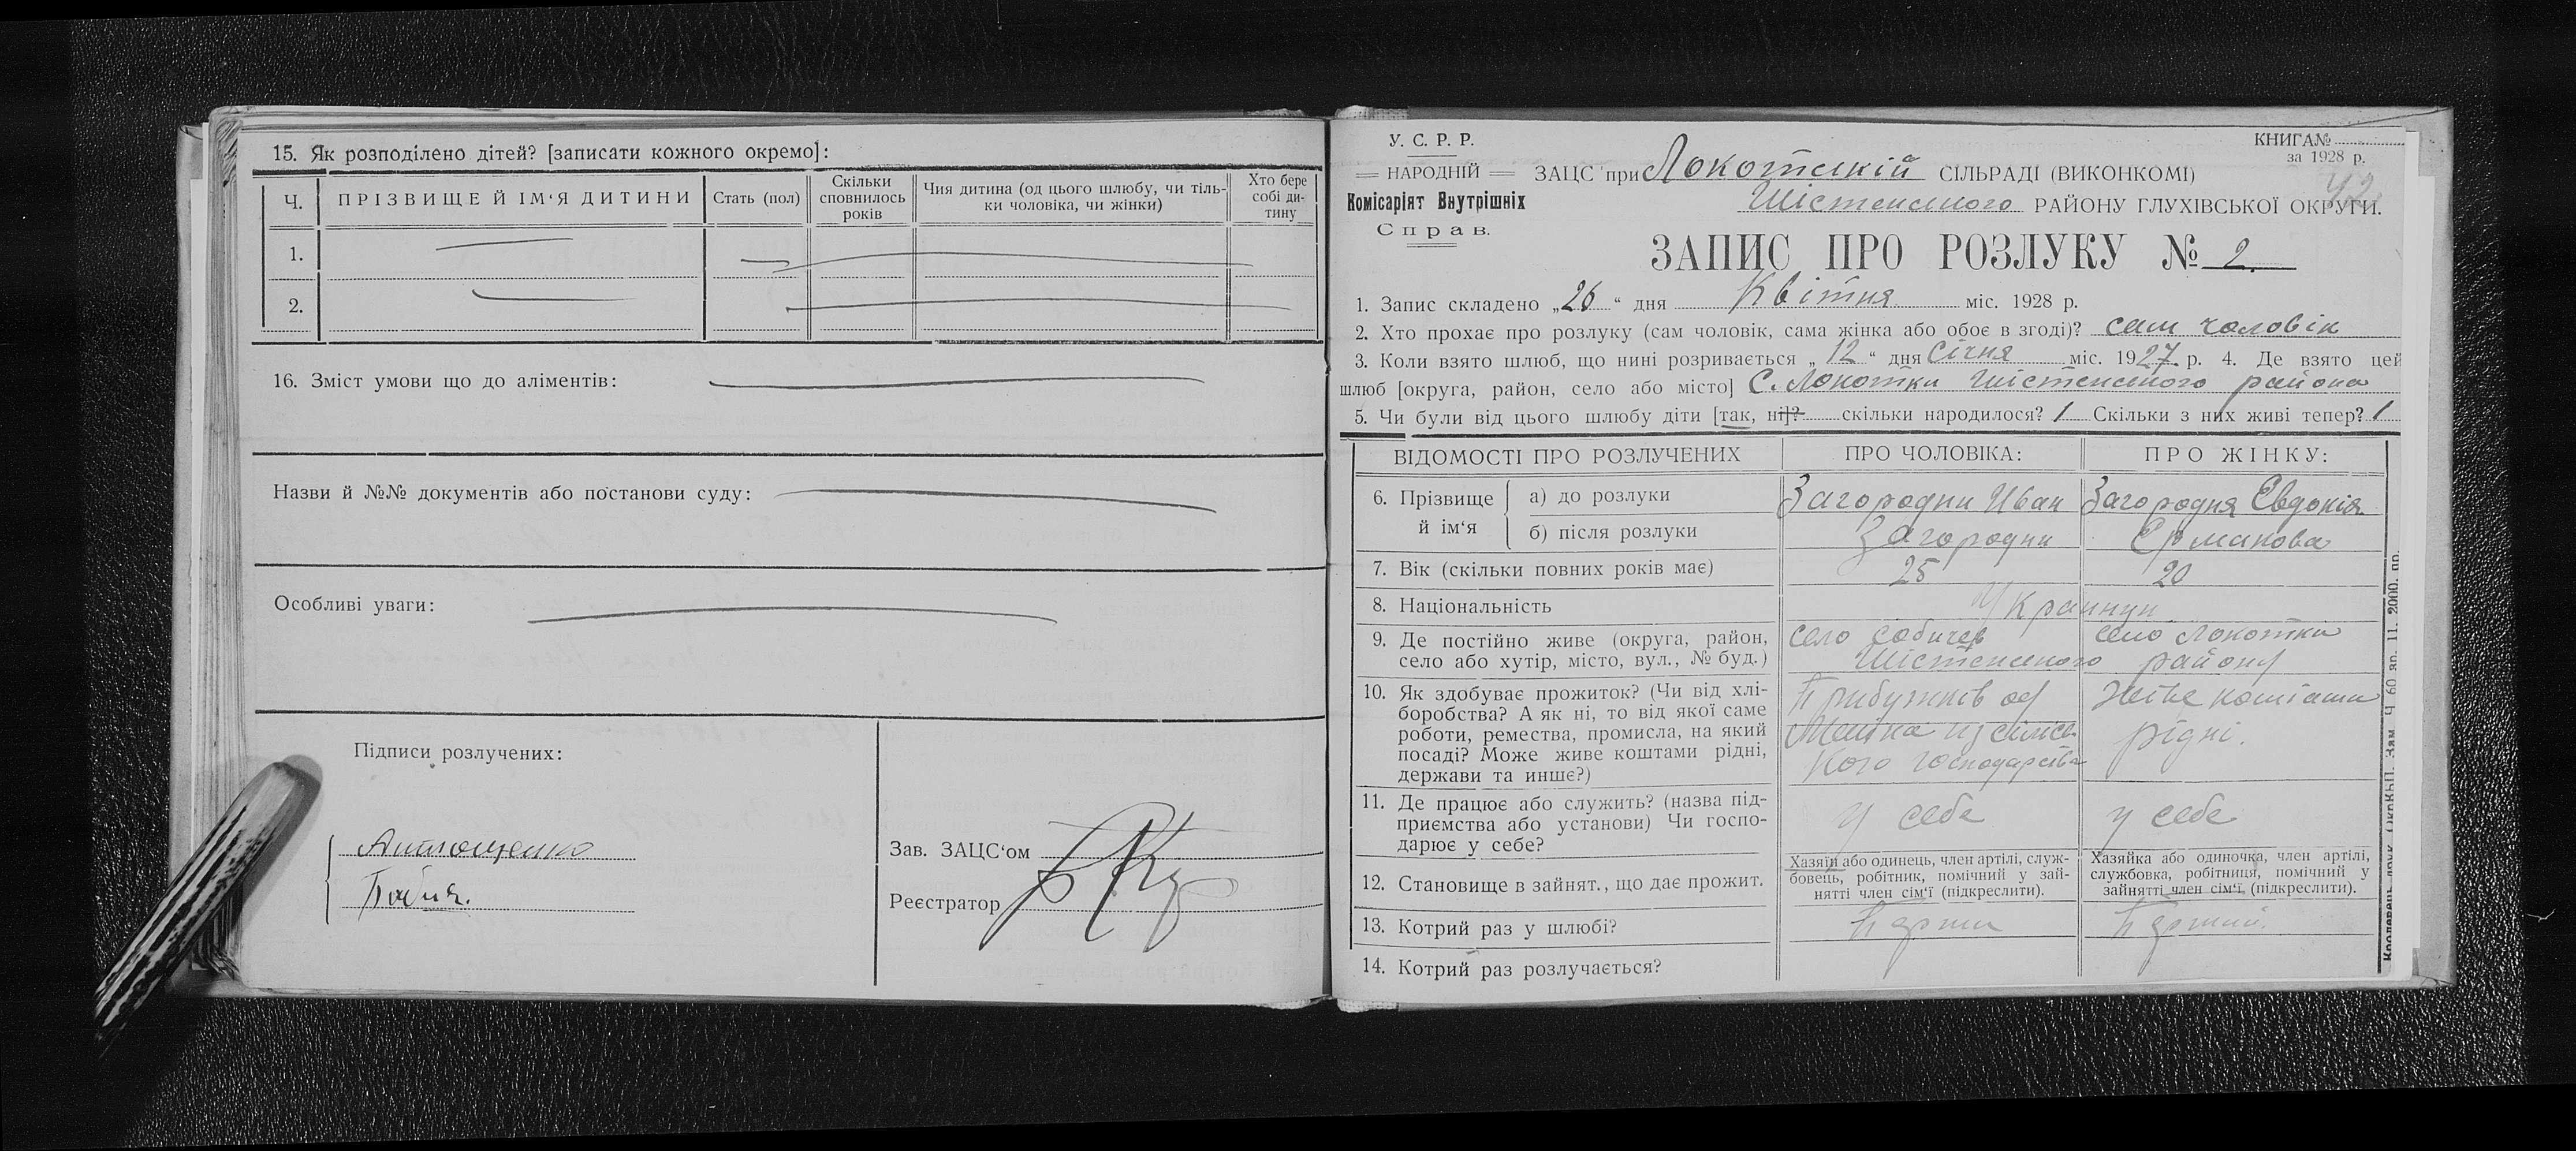 15. Як розподілено дітей? [записати кожного окремо]:
Ч. ПРІЗВИЩЕ Й ІМ‘Я ДИТИНИ Стать (пол) Скільки сповнилось років Чия дитина (од цього шлюбу, чи тіль-ки чоловіка, чи жінки) Хто бере собі ди-тину
1.
2.
16. Зміст умови що до аліментів:
Назви й №№ документів або постанови суду:
Особливі уваги:
Підписи розлучених:
Антющенко
Зав. ЗАЦС‘ом
Реєстратор
У. С. Р. Р.
НАРОДНІЙ
Комісаріят Внутрішніх
Справ.
КНИГА№
за 1928 р.
42
ЗАЦС при Локотській СІЛЬРАДІ (ВИКОНКОМІ)
Шістенського РАЙОНУ ГЛУХІВСЬКОЇ ОКРУГИ.
ЗАПИС ПРО РОЗЛУКУ № 2.
1. Запис складено „26“ дня Квітня міс. 1928 р.
2. Хто прохає про розлуку (сам чоловік, сама жінка або обоє в згоді)? сам чоловік
3. Коли взято шлюб, що нині розривається „12“ дня Січня міс. 1927 р. 4. Де взято цей
шлюб [округа, район, село або місто] С. Локотки Шістенського района
5. Чи були від цього шлюбу діти [так, ні]? скільки народилося? 1 Скільки з них живі тепер? 1
ВІДОМОСТІ ПРО РОЗЛУЧЕНИХ ПРО ЧОЛОВІКА: ПРО ЖІНКУ:
6. Прізвище й ім‘я а) до розлуки Загородни Иван Загородня Евдокія
б) після розлуки Загородни Ермакова
7. Вік (скільки повних років має) 25 20
8. Національність Украинци
9. Де постійно живе (округа, район, село Собичев село Локотки
село або хутір, місто, вул., № буд.) Шістенського району
10. Як здобуває прожиток? (Чи від хлі-
боробства? А як ні, то від якої саме
роботи, ремества, промисла, на який
посаді? Може живе коштами рідні,
держави та инше?)
Прибутків од
кого господарства
живе коштами
рідні.
11. Де працює або служить? (назва під-
приємства або установи) Чи госпо-
дарює у себе?
у себе у себе
12. Становище в зайнят., що дає прожит.
Хазяїн або одинець, член артілі, служ-
бовець, робітник, помічний у зай-
нятті член сім‘ї (підкреслити).
Хазяйка або одиночка, член артілі,
службовка, робітниця, помічний у
зайнятті член сім‘ї (підкреслити).
13. Котрий раз у шлюбі?
14. Котрий раз розлучається?